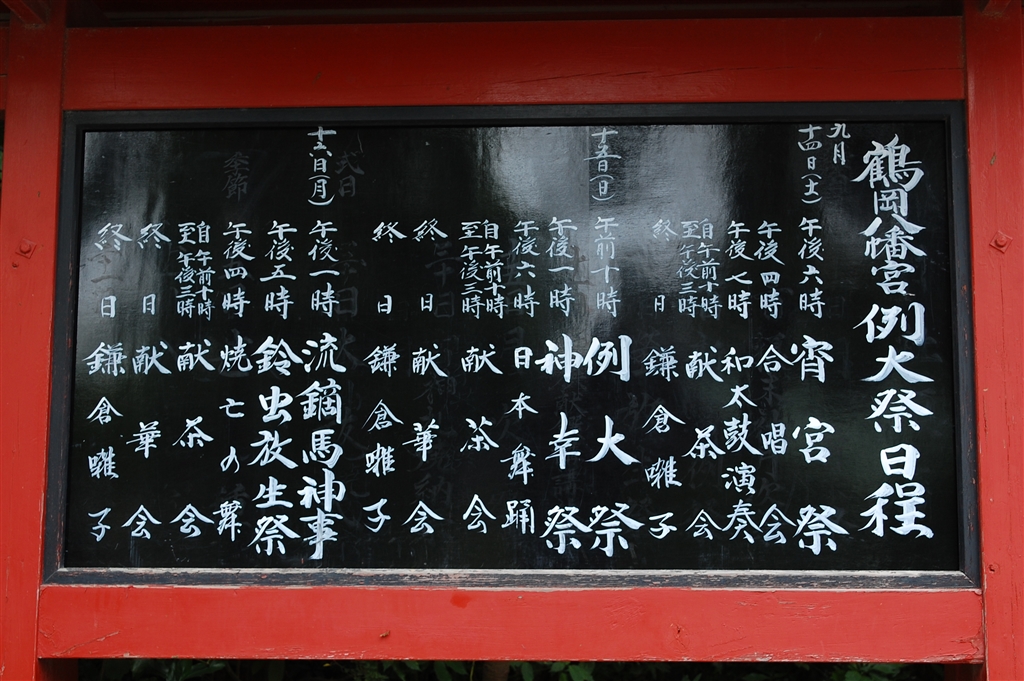 鶴岡八幡宮例大祭日程
九月
十四日(土)午後六時 宵宮祭
午後四時 合唱会
午後七時 和太鼓演奏
自午前十時至午後三時 献茶会
終日 鎌倉囃子
十五日(日)午前十時 例大祭
午後一時 神幸祭
午後六時 日本舞踊
自午前十時至午後三時 献茶会
終日 献華会
終日 鎌倉囃子
十六日(月)午後一時 流鏑馬神事
午後五時 鈴虫放生祭
午後四時 焼亡の舞
自午前十時至午後三時 献茶会
終日 献華会
終日 鎌倉囃子